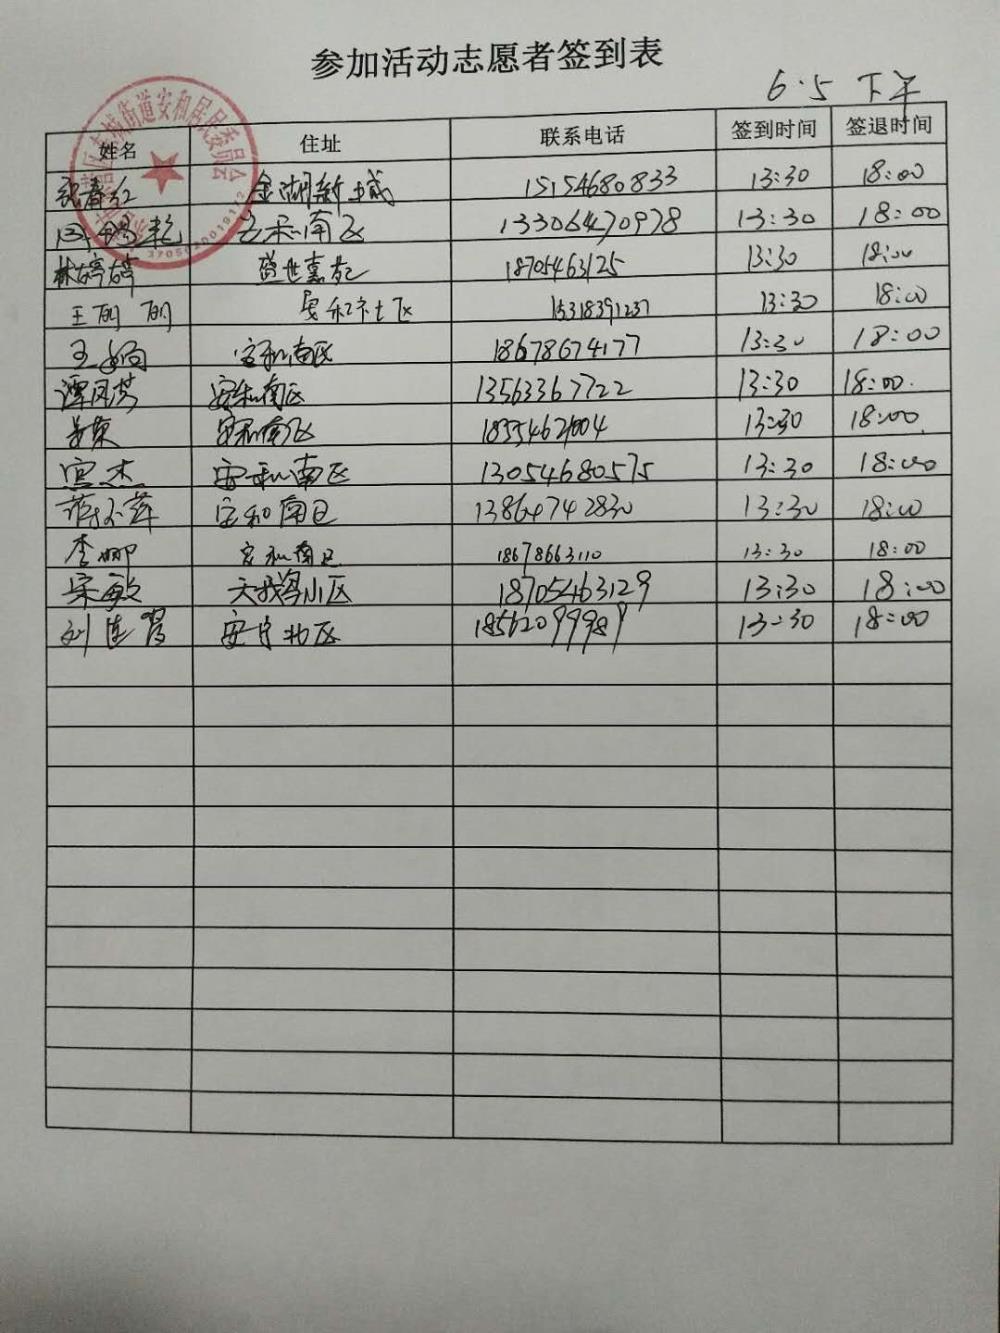 参加活动志愿者签到表
6.5 下午
姓名 住址 联系电话 签到时间 签退时间
张春红 金湖新城 15154680833 13:30 18:00
安和南区 13306470978 13:30 18:00
林婷婷 盛世嘉苑 18705463125 13:30 18:00
王丽丽 安和社区 15318391237 13:30 18:00
王娟 安和南区 18678674177 13:30 18:00
谭凤芹 安和南区 13563367722 13:30 18:00
安和南区 13:30 18:00
宫杰 安和南区 13054680575 13:30 18:00
安和南区 13864742830 13:30 18:00
李娜 安和南区 18678663110 13:30 18:00
宋敏 小区 18705463129 13:30 18:00
刘连 安宁北区 18562099989 13:30 18:00
街道安和居民委员会